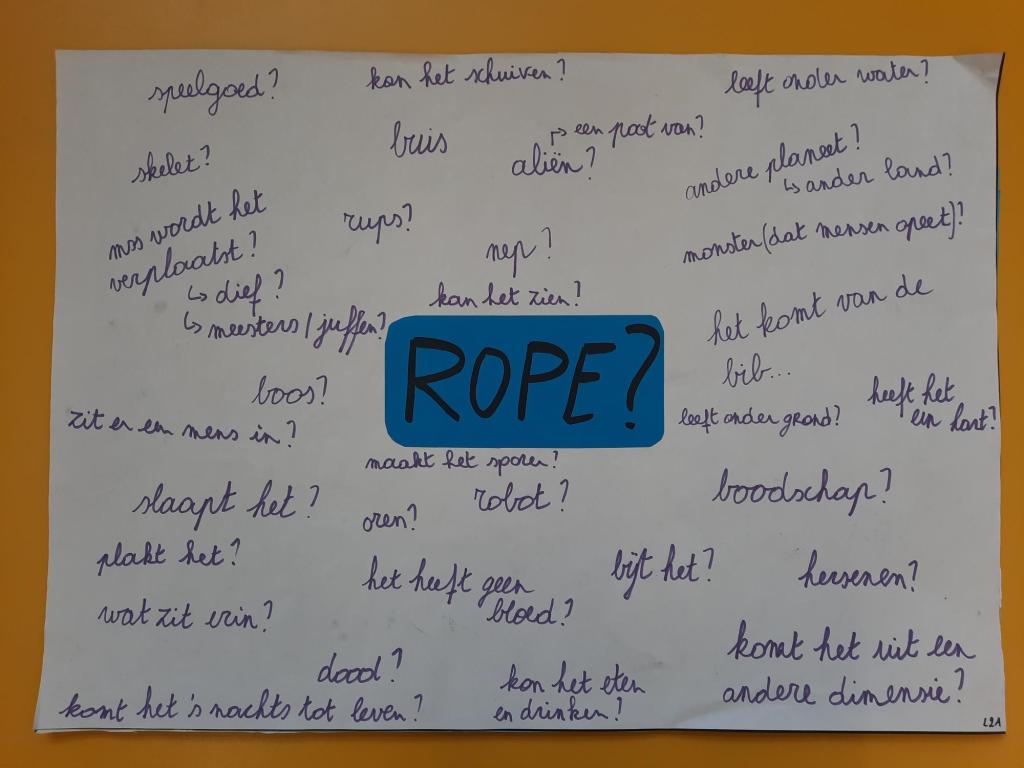 speelgoed?
kan het schuiven?
leeft onder water?
buis
↱ een poot van?
aliën?
skelet?
andere planeet?
↳ ander land?
mos wordt het
verplaatst?
↳ dief?
↳ meesters/juffen?
rups?
nep?
monster (dat mensen opeet)?
kan het zien?
het komt van de
bib...
ROPE?
boos?
zit er een mens in?
leeft onder grond?
heeft het
een hart?
maakt het sporen?
slaapt het?
oren?
robot?
boodschap?
plakt het?
het heeft geen
bloed?
bijt het?
hersenen?
wat zit erin?
dood?
kan het eten
en drinken?
komt het uit een
andere dimensie?
komt het 's nachts tot leven?
L2A